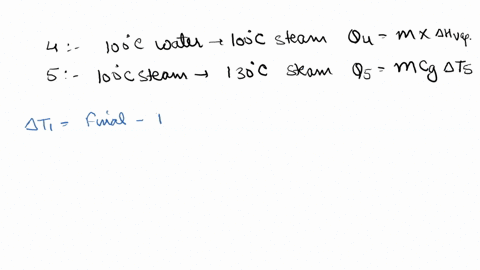 4 :- 100°C water → 100°C steam Q4 = m x ΔHvap.
5 :- 100°C steam → 130°C steam Q5 = m Cg ΔT5
ΔT1 = Final - I